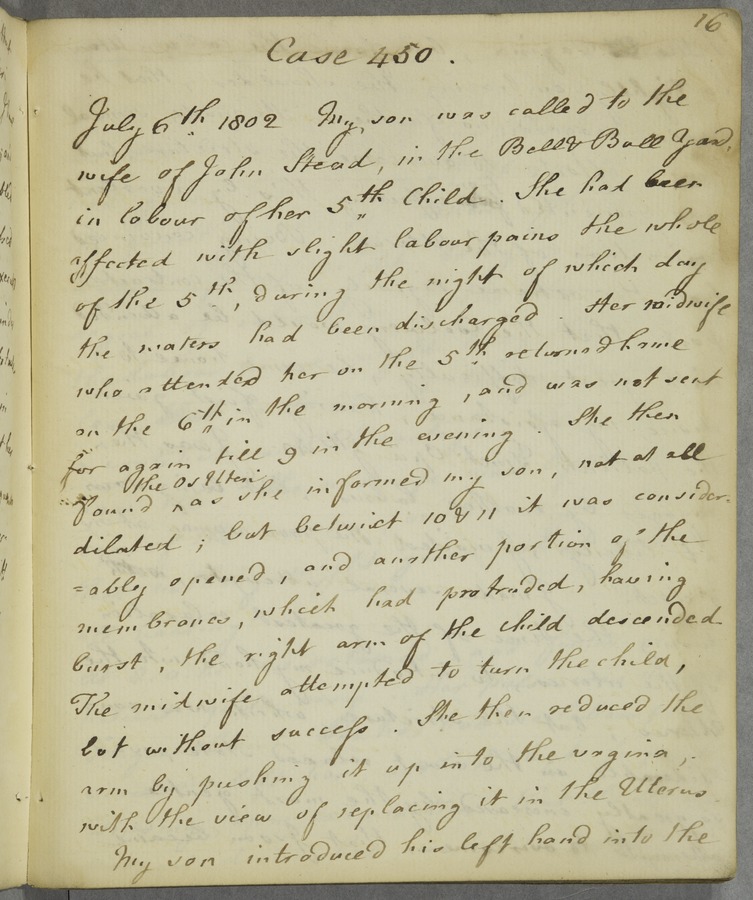 16
Case 450.
July 6th 1802 My son was called to the
wife of John Stead, in the Bell & Bull Yard,
in labour of her 5th Child. She had been
affected with slight labour pains the whole
of the 5th, during the night of which day
the waters had been discharged. Her midwife
who attended her on the 5th returned home
on the 6th in the morning, and was not sent
for again till 9 in the evening. She then
the Os Uteri
found ^ as she informed my son, not at all
dilated; but betwixt 10 & 11 it was consider-
=ably opened, and another portion of the
membranes, which had protruded, having
burst, the right arm of the child descended
The midwife attempted to turn the child,
but without success. She then reduced the
arm by pushing it up into the vagina,
with the view of replacing it in the Uterus
My son introduced his left hand into the